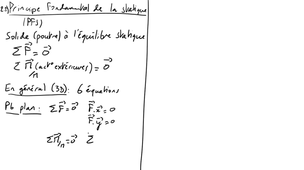 2) Principe Fondamental de la statique
(PFS)
Solide (poutre) à l'équilibre statique
Σ F⃗ = 0⃗
Σ M⃗/n (act° extérieures) = 0⃗
En général (3D): 6 équations
Pb plan: Σ F⃗ = 0⃗ F⃗.x⃗ = 0
F⃗.y⃗ = 0
Σ M⃗/n = 0⃗ Z